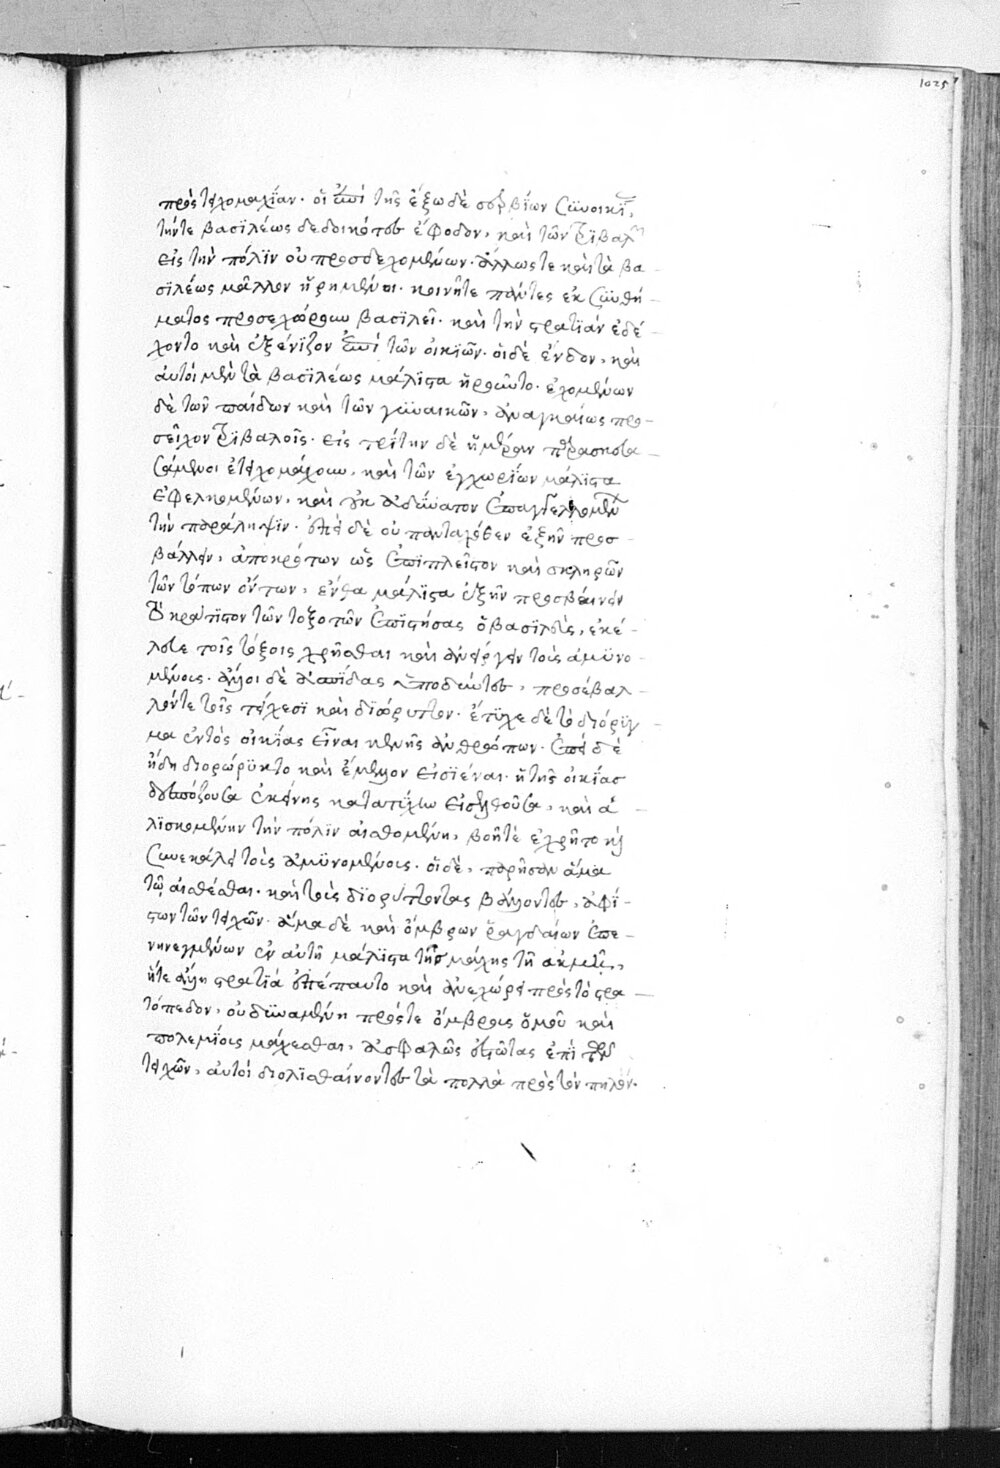 1025
πρὸς τειχομαχίαν. οἱ ἐπὶ τῆς ἔξω δὲ σουρβίων συνοικί,
τήν τε βασιλέως δεδοικότες ἔφοδον, καὶ τῶν Τριβαλ
εἰς τὴν πόλιν οὐ προσδεχομένων. ἄλλως τε καὶ τὰ βα
σιλέως μᾶλλον ᾑρημένοι. κοινῇ τε πάντες ἐκ συνθή
ματος προσεχώρουν βασιλεῖ. καὶ τὴν στρατιὰν ἐδέ
χοντο καὶ ἐξένιζον ἐπὶ τῶν οἰκιῶν. οἱ δὲ ἔνδον, καὶ
αὐτοὶ μὲν τὰ βασιλέως μάλιστα ᾑροῦντο. ἐχομένων
δὲ τῶν παίδων καὶ τῶν γυναικῶν, ἀναγκαίως προ
σεῖχον Τριβαλοῖς. εἰς τρίτην δὲ ἡμέραν παρασκευα
σάμενοι ἐτειχομάχουν, καὶ τῶν ἐγχωρίων μάλιστα
ἐφελκομένων, καὶ οὐκ ἀδύνατον ἐπαγγελλομένων
τὴν παράληψιν. ἐπεὶ δὲ οὐ πανταχόθεν ἐξῆν προσ
βάλλειν, ἀποκρότων ὡς ἐπιπλεῖστον καὶ σκληρῶν
τῶν τόπων ὄντων, ἔνθα μάλιστα ἐξῆν προσβαίνειν
τὸ κράτιστον τῶν τοξοτῶν ἐπιστήσας ὁ βασιλεὺς, ἐκέ
λευε τοῖς τόξοις χρῆσθαι καὶ ἀνείργειν τοὺς ἀμυνο
μένους. ἄλλοι δὲ ἀσπίδας ὑποδύντες, προσέβαλ
λόν τε τοῖς τείχεσι καὶ διώρυττον. ἔτυχε δὲ τὸ διόρυγ
μα ἐντὸς οἰκίας εἶναι κενῆς ἀνθρώπων. ἐπεὶ δὲ
ἤδη διορώρυκτο καὶ ἔμελλον εἰσιέναι. ἡ τῆς οἰκίας
δεσπόζουσα ἐκείνης κατατύχην εἰσελθοῦσα, καὶ ἁ
λισκομένην τὴν πόλιν αἰσθομένη, βοῇ τὲ ἐχρῆτο καὶ
συνεκάλει τοὺς ἀμυνομένους. οἱ δὲ, παρῆσαν ἅμα
τῷ αἰσθέσθαι. καὶ τοὺς διορύττοντας βάλλοντες, ἀφί
στων τῶν τειχῶν. ἅμα δὲ καὶ ὄμβρων ῥαγδαίων ἐπε
νηνεγμένων ἐν αὐτῇ μάλιστα τῆς μάχης τῇ ἀκμῇ,
ἥ τε ἄλλη στρατιὰ ἐπέπαυτο καὶ ἀνεχώρει πρὸς τὸ στρα
τόπεδον, οὐ δυναμένη πρός τε ὄμβρους ὁμοῦ καὶ
πολεμίοις μάχεσθαι, ἀσφαλῶς ἑστῶτας ἐπὶ τῶν
τειχῶν, αὐτοὶ διολισθαίνοντες τὰ πολλὰ πρὸς τὸν πηλόν.